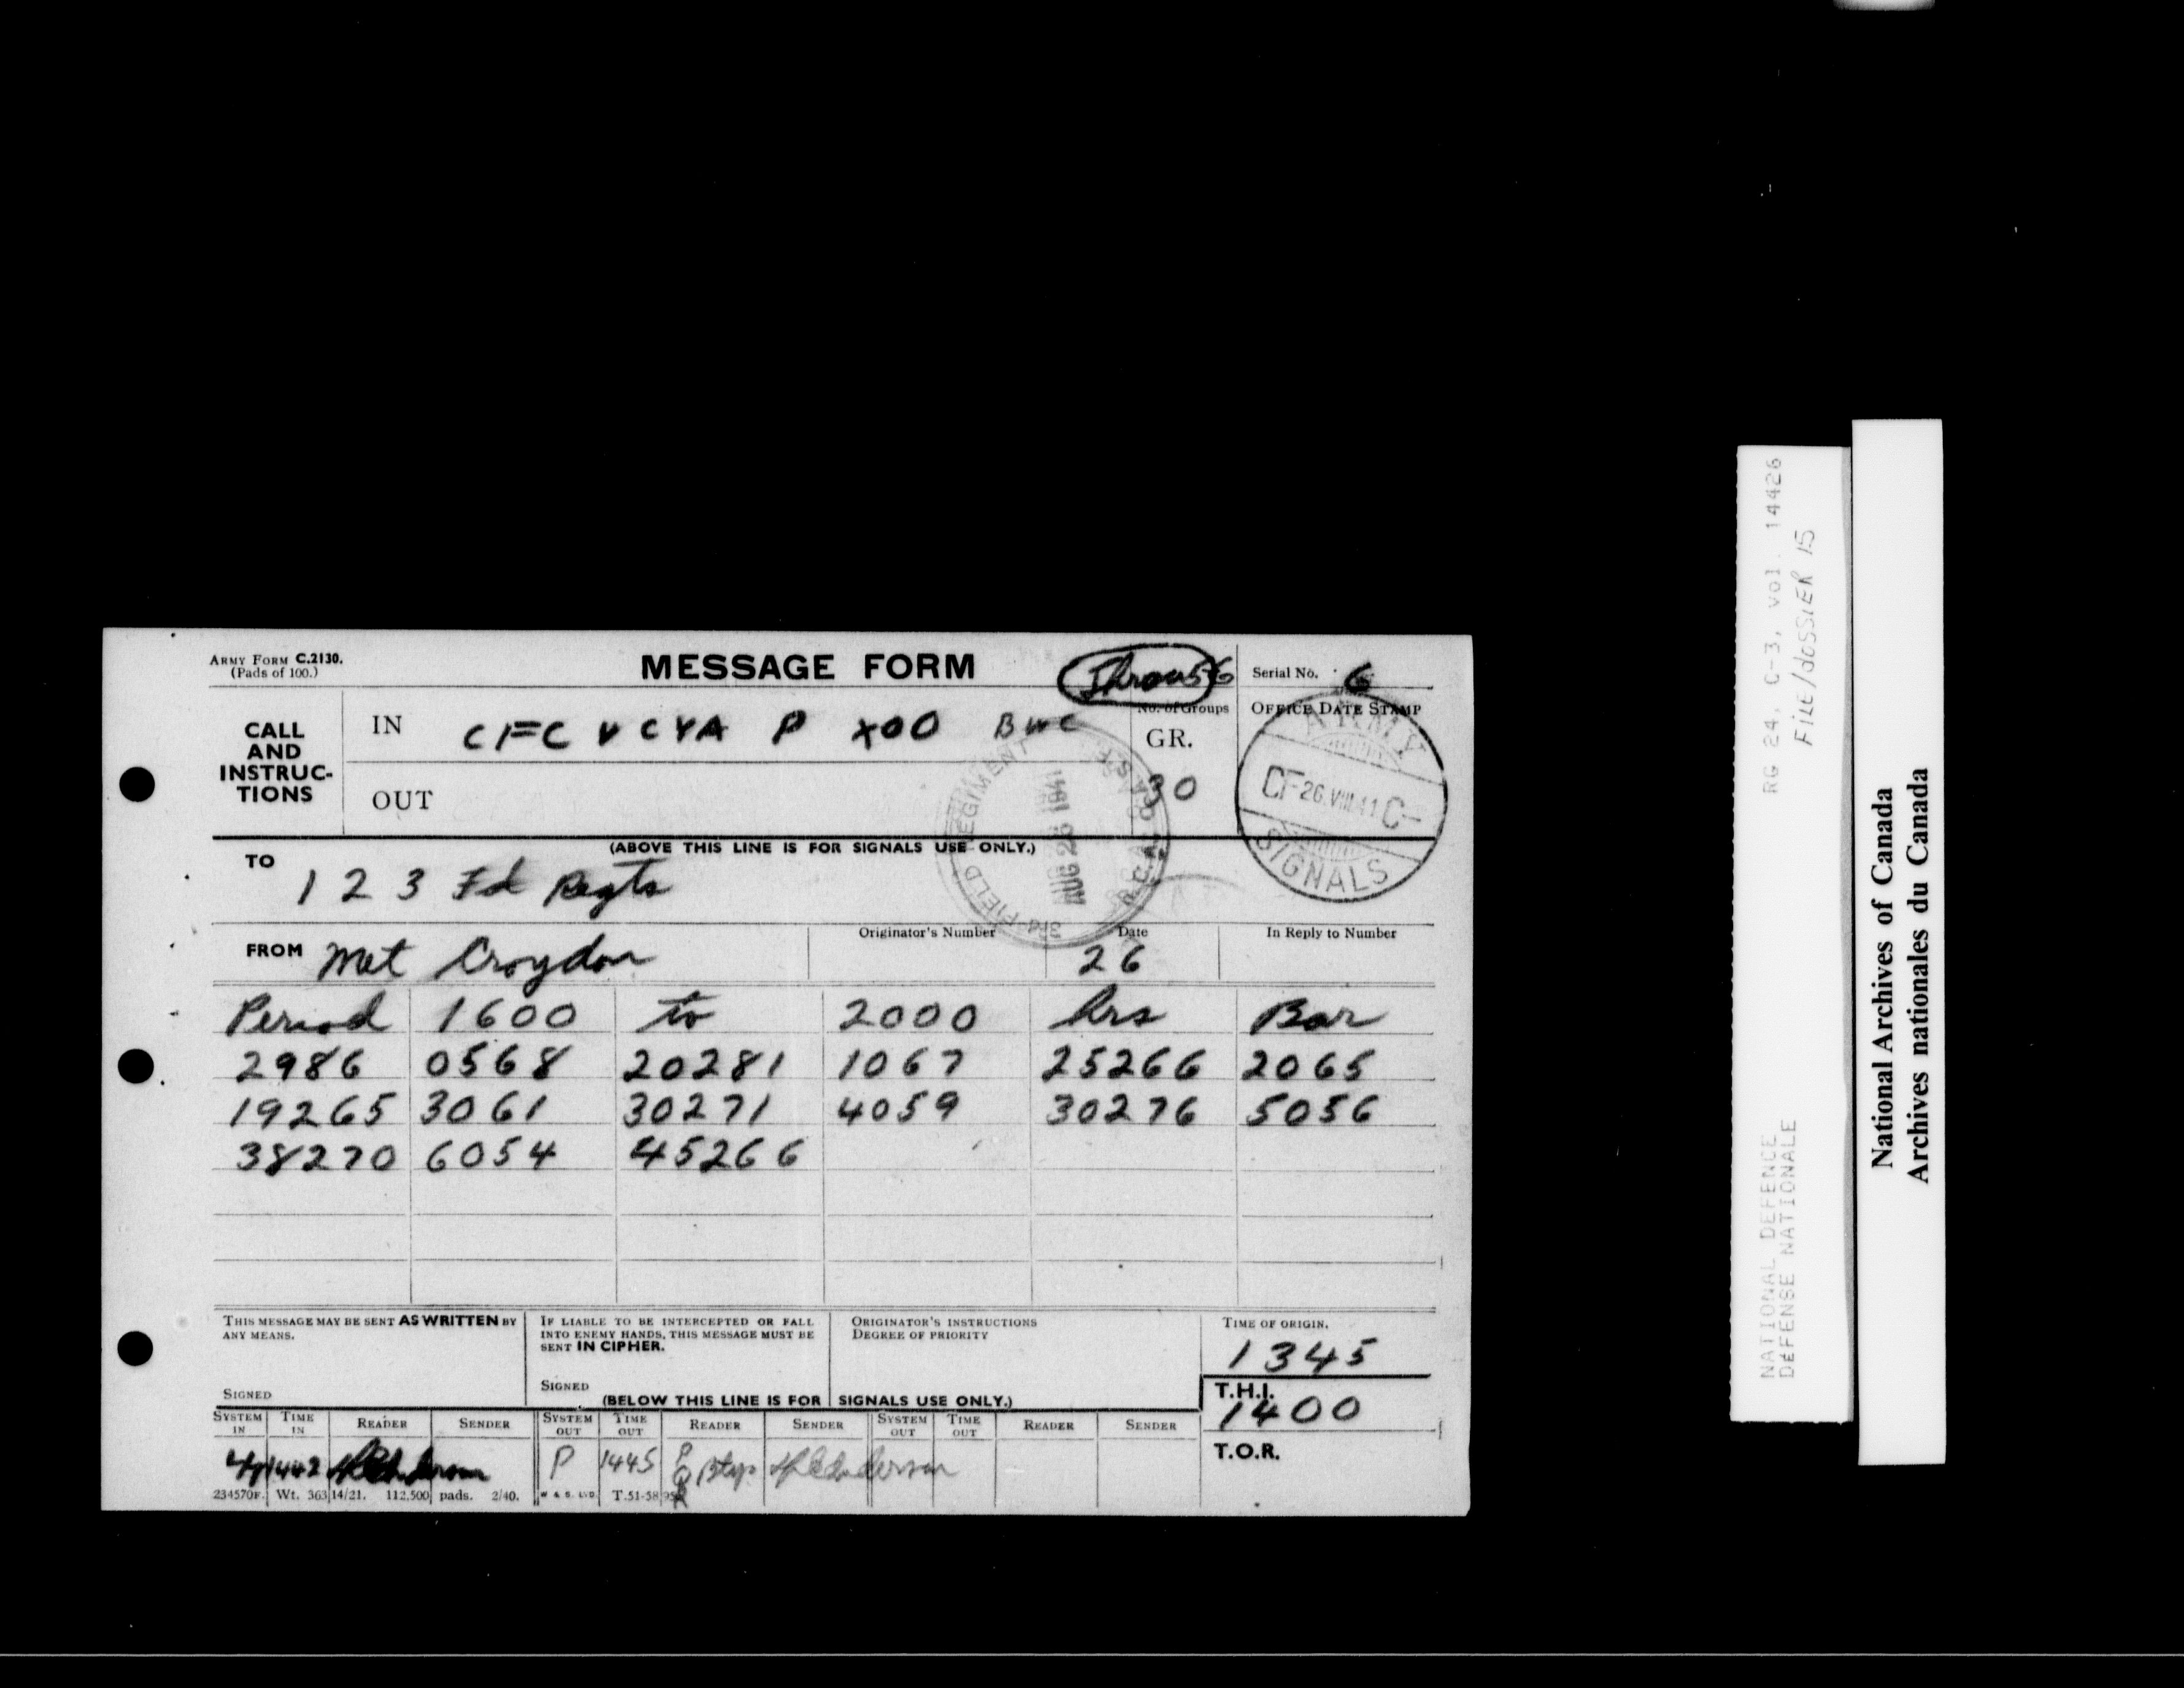 ARMY FORM C.2130.
(Pads of 100.)
MESSAGE FORM
56
Serial No. 6
CALL AND INSTRUC-TIONS
IN CFC V CYA P X00 BWC
OUT
No. of Groups
GR.
30
OFFICE DATE STAMP
ARMY
CF-26.VIII.41 C-
SIGNALS
3RD FIELD REGIMENT
AUG 26 1941
R.C.A., C.A.S.F.
(ABOVE THIS LINE IS FOR SIGNALS USE ONLY.)
TO 1 2 3 Fd Regts
FROM Met Croydon
Originator's Number
Date
26
In Reply to Number
Period 1600 to 2000 hrs Bar
2986 0568 20281 1067 25266 2065
19265 3061 30271 4059 30276 5056
38270 6054 45266
THIS MESSAGE MAY BE SENT AS WRITTEN BY
ANY MEANS.
SIGNED
IF LIABLE TO BE INTERCEPTED OR FALL
INTO ENEMY HANDS, THIS MESSAGE MUST BE
SENT IN CIPHER.
SIGNED
ORIGINATOR'S INSTRUCTIONS
DEGREE OF PRIORITY
TIME OF ORIGIN.
1345
T.H.I.
1400
T.O.R.
(BELOW THIS LINE IS FOR SIGNALS USE ONLY.)
SYSTEM IN TIME IN READER SENDER SYSTEM OUT TIME OUT READER SENDER SYSTEM OUT TIME OUT READER SENDER
1442 P 1445
234570F. Wt. 36314/21. 112,500 pads. 2/40. W & S. LTD. T.51-58
RG 24, C-3, vol. 14426
FILE/dOSSIER 15
NATIONAL DEFENCE
DÉFENSE NATIONALE
National Archives of Canada
Archives nationales du Canada